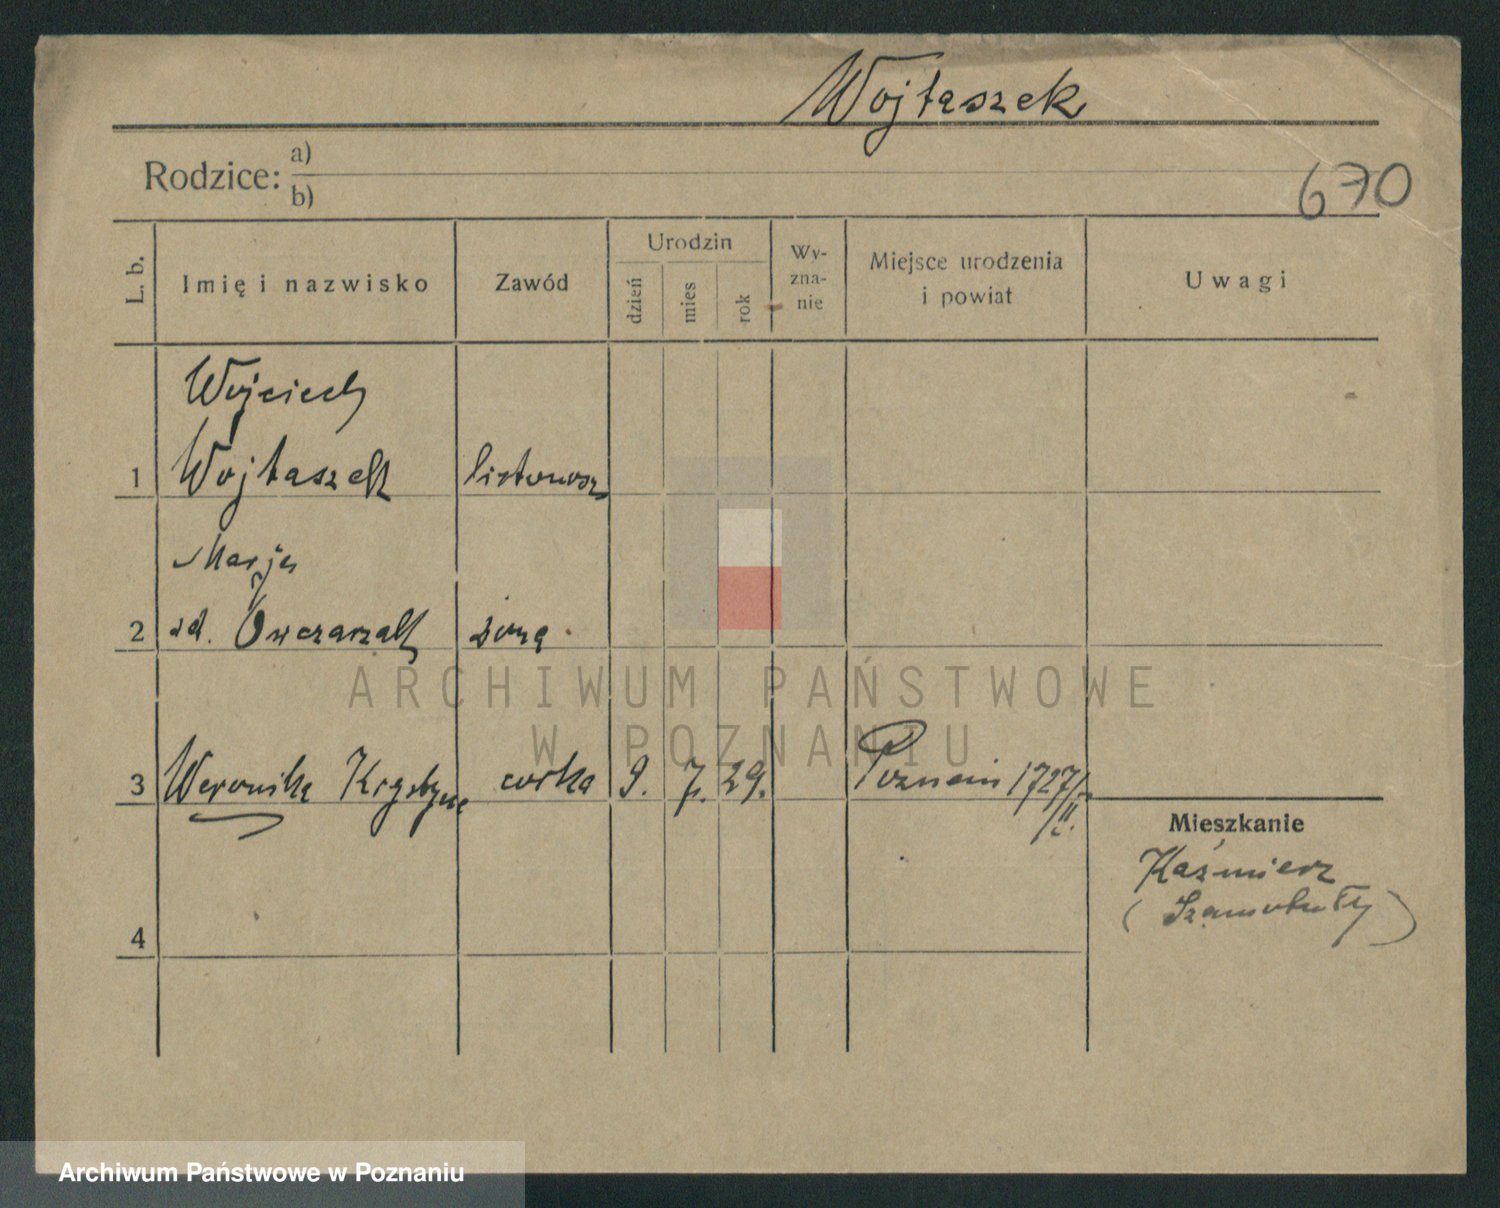 Wojtaszek
Rodzice: a)
b)
670
L. b.
Imię i nazwisko
Zawód
Urodzin
dzień
mies
rok
Wy-
zna-
nie
Miejsce urodzenia
i powiat
Uwagi
Wojciech
1 Wojtaszek listonosz
Marja
2 zd. Owczarzak żona
3 Weronika Krystyna córka 9. 7. 29. Poznań 1727/
II.
Mieszkanie
Kaźmierz
(Szamotuły)
4
ARCHIWUM PAŃSTWOWE
W POZNANIU
Archiwum Państwowe w Poznaniu